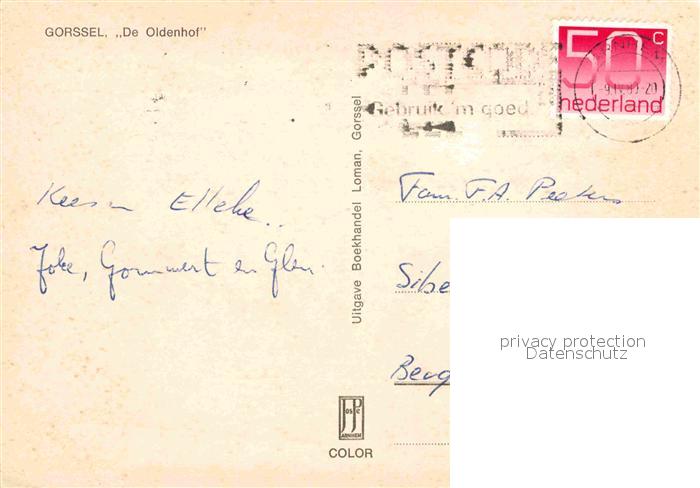 GORSSEL, „De Oldenhof”
POSTCODE
Gebruik 'm goed.
50 c
nederland
Uitgave Boekhandel Loman, Gorssel
Kees en Elleke..
Joke, Gommert en Glen.
Fam. F.A. Peeters
Sibe
Berg
privacy protection
Datenschutz
JosPé
ARNHEM
COLOR